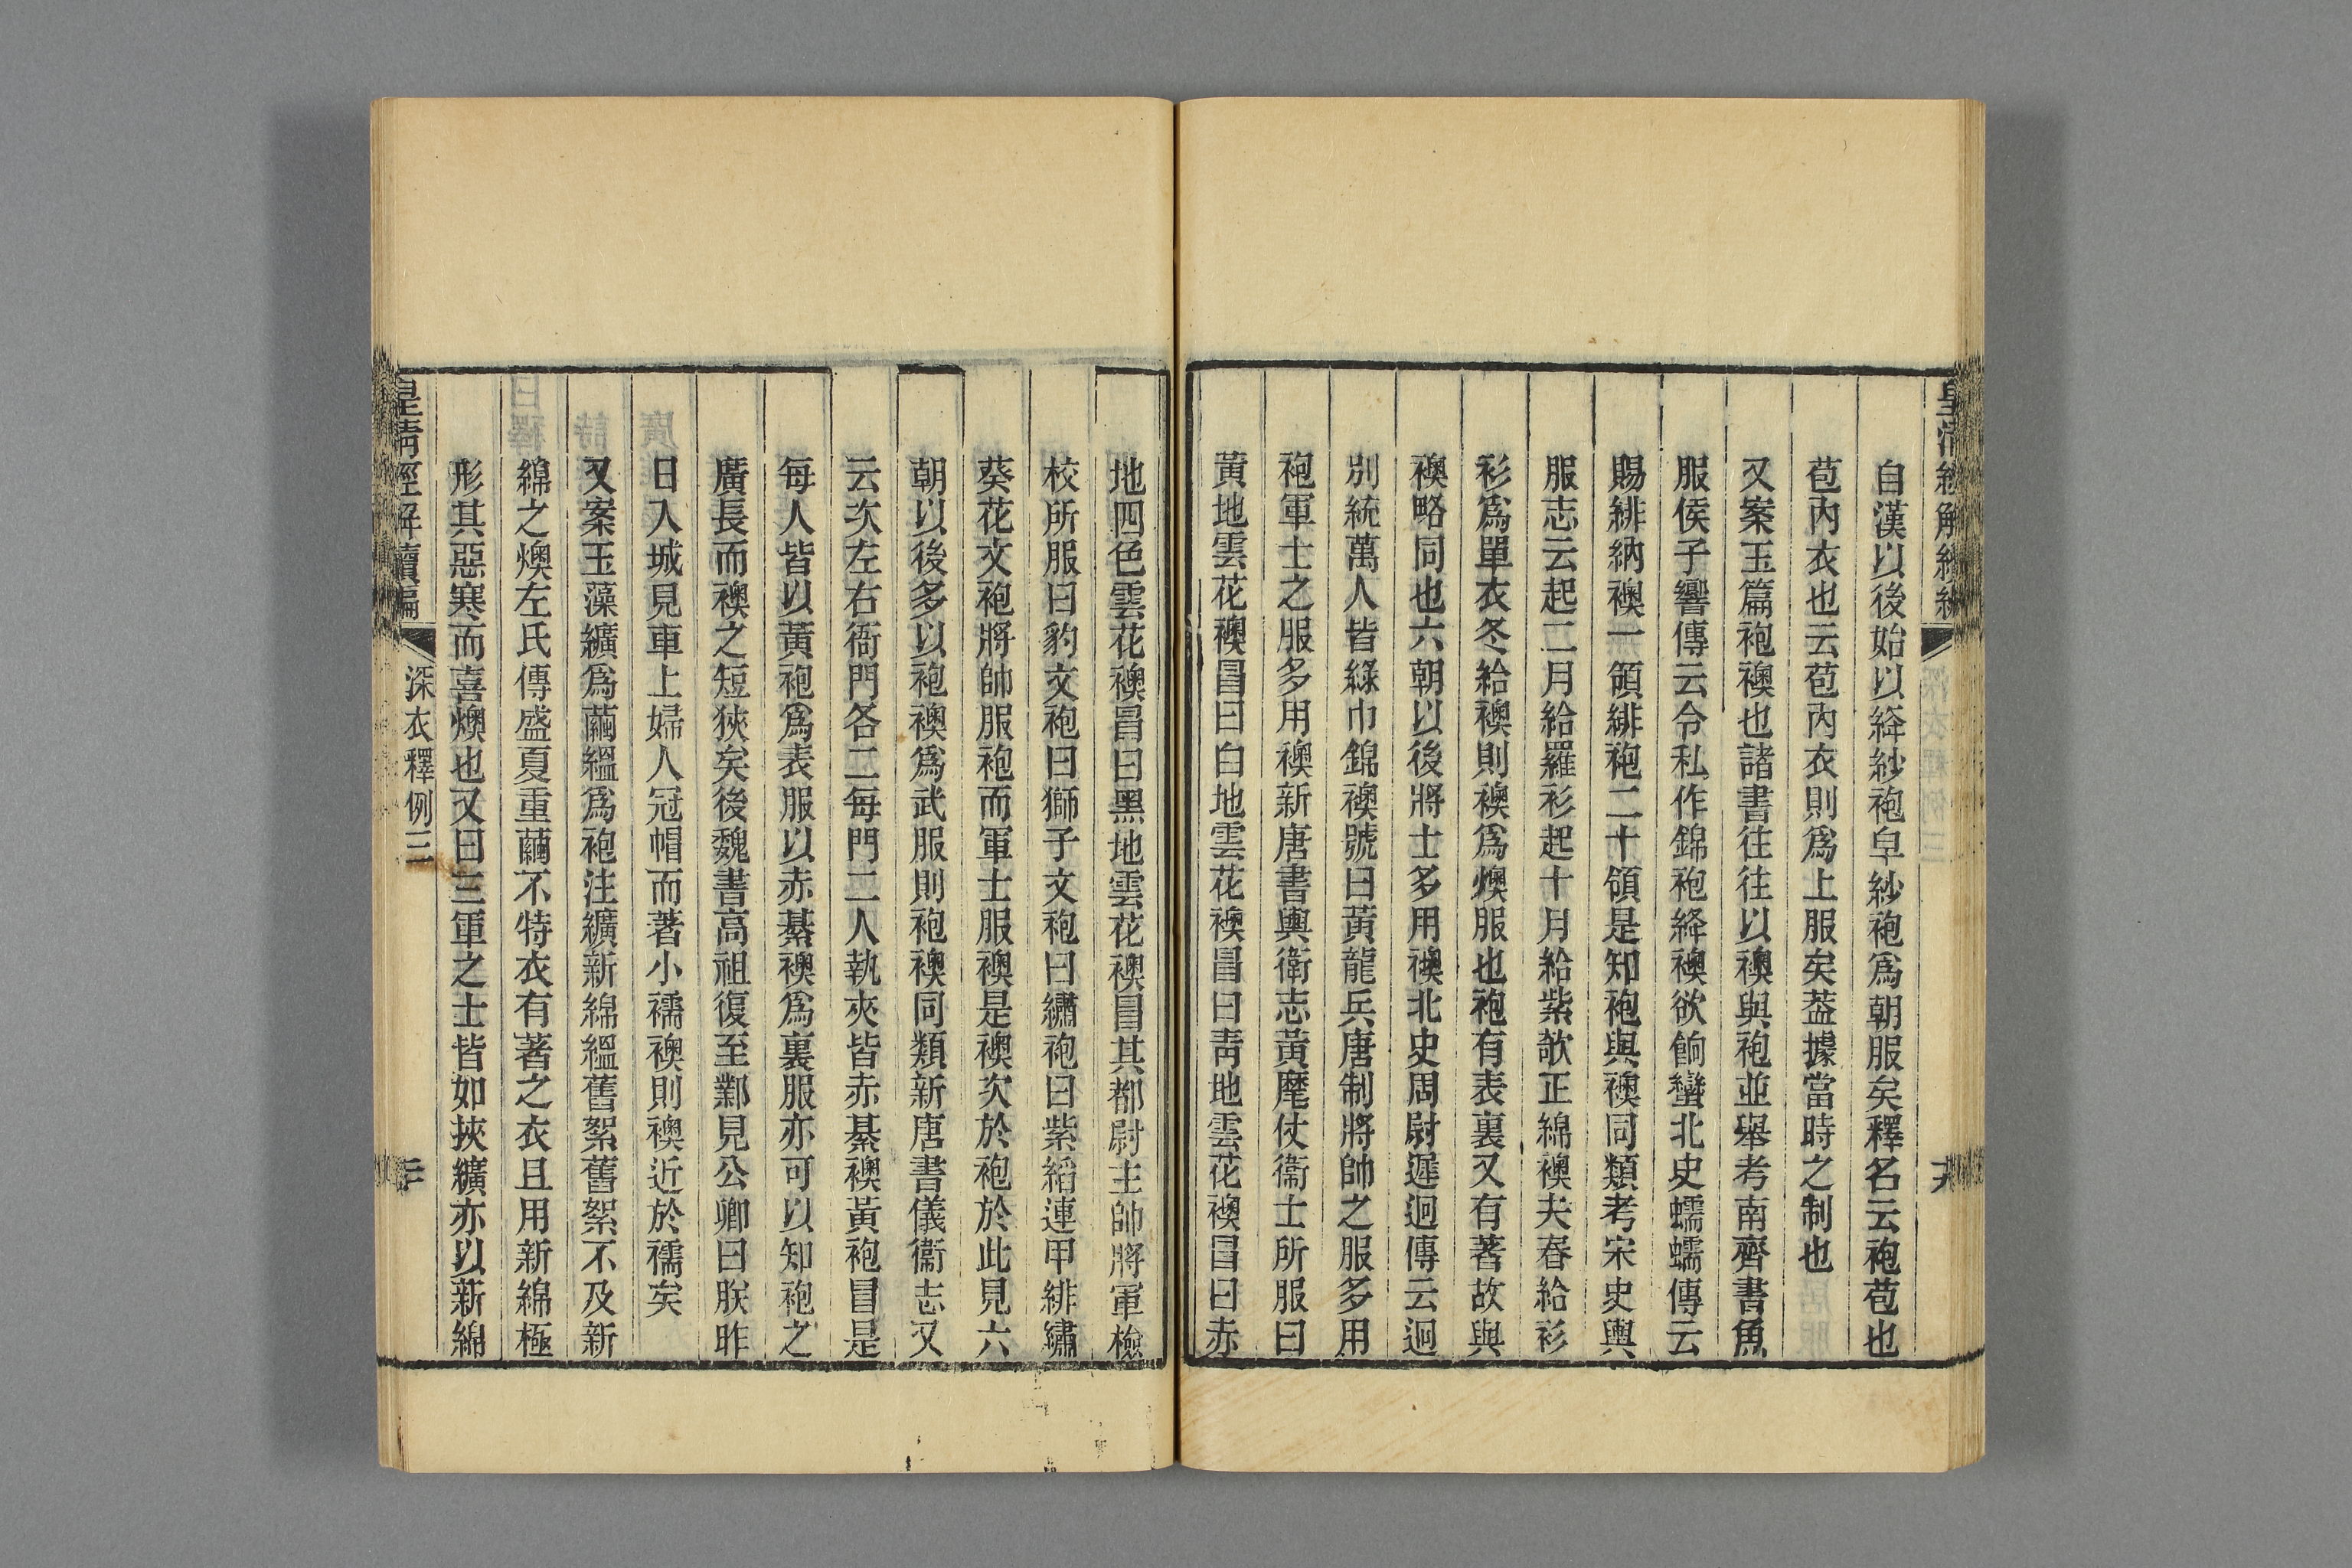 自漢以後始以絳紗袍皁紗袍爲朝服矣釋名云袍苞也
苞內衣也云苞內衣則爲上服矣葢據當時之制也
又案玉篇袍襖也諸書往往以襖與袍並舉考南齊書魚
服侯子響傳云令私作錦袍絳襖欲餉蠻北史蠕蠕傳云
賜緋納襖一領緋袍二十領是知袍與襖同類考宋史輿
服志云起二月給羅衫起十月給紫欹正綿襖夫春給衫
衫爲單衣冬給襖則襖爲燠服也袍有表裏又有著故與
襖略同也六朝以後將士多用襖北史周尉遲迥傳云迥
別統萬人皆綠巾錦襖號曰黃龍兵唐制將帥之服多用
袍軍士之服多用襖新唐書輿衛志黃麾仗衞士所服曰
黃地雲花襖冒曰白地雲花襖冒曰靑地雲花襖冒曰赤
地四色雲花襖冒曰黑地雲花襖冒其都尉主帥將軍檢
校所服曰豹文袍曰獅子文袍曰繡袍曰紫縚連甲緋繡
葵花文袍將帥服袍而軍士服襖是襖次於袍於此見六
朝以後多以袍襖爲武服則袍襖同類新唐書儀衞志又
云次左右衙門各二每門二人執夾皆赤綦襖黃袍冒是
每人皆以黃袍爲表服以赤綦襖爲裏服亦可以知袍之
廣長而襖之短狹矣後魏書高祖復至鄴見公卿曰朕昨
日入城見車上婦人冠帽而著小襦襖則襖近於襦矣
又案玉藻纊爲繭縕爲袍注纊新綿縕舊絮舊絮不及新
綿之燠左氏傳盛夏重繭不特衣有著之衣且用新綿極
形其惡寒而喜燠也又曰三軍之士皆如挾纊亦以新綿
皇淸經解續編
深衣釋例三